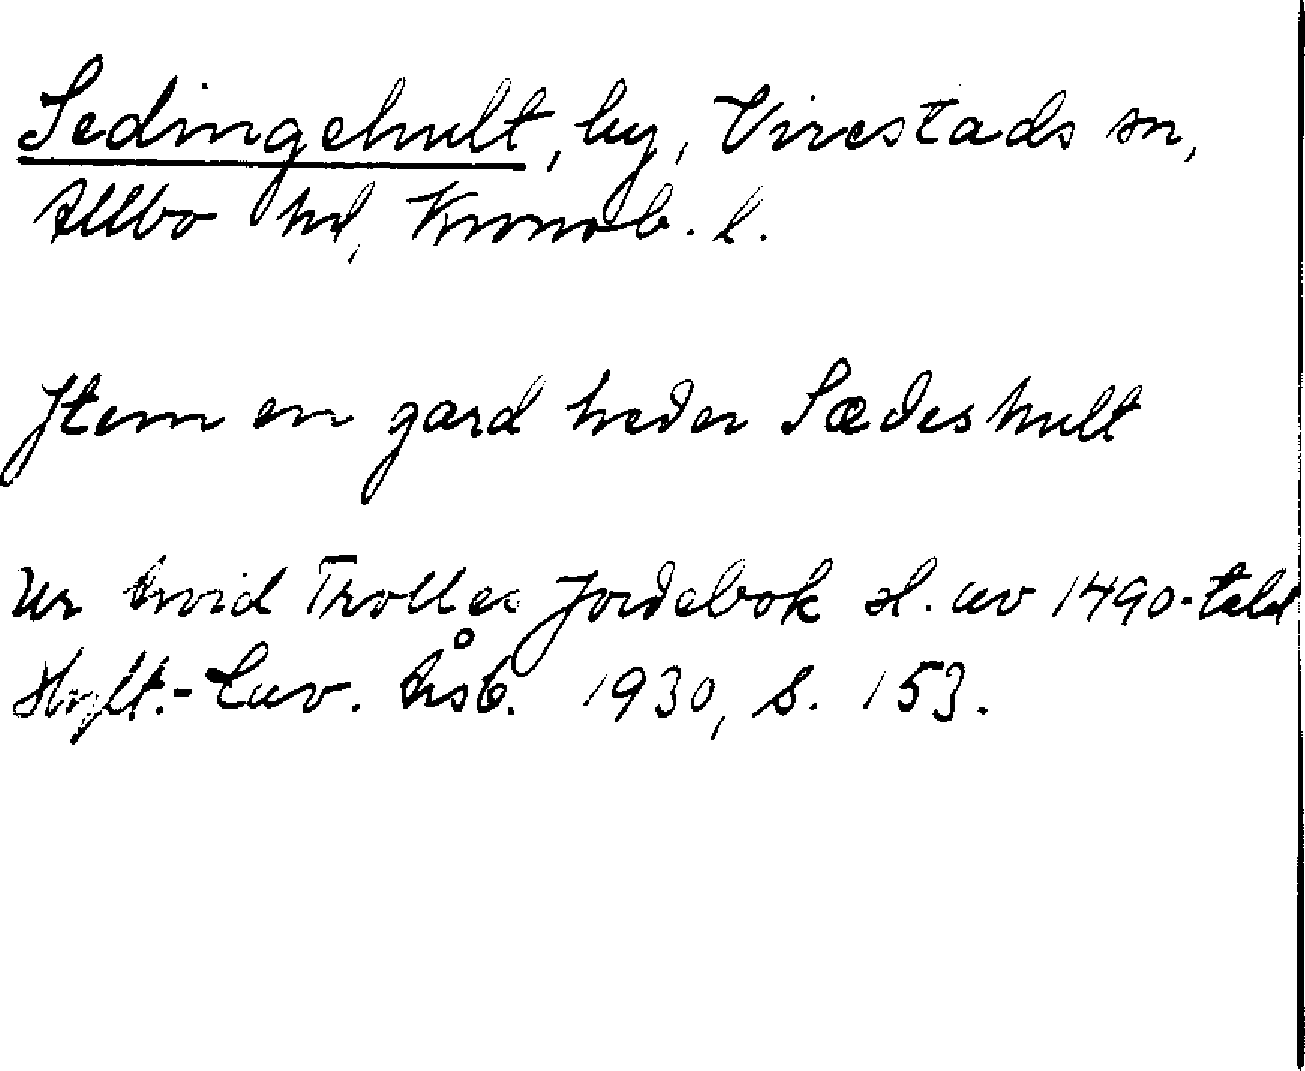 Sedingehult, by, Virestads sn,
Allbo hd, Kronob. l.
Item en gard heder Sædeshult
Ur Arvid Trolles Jordebok sl. av 1490-talet
Hylt.-Cav. Årsb. 1930, s. 153.